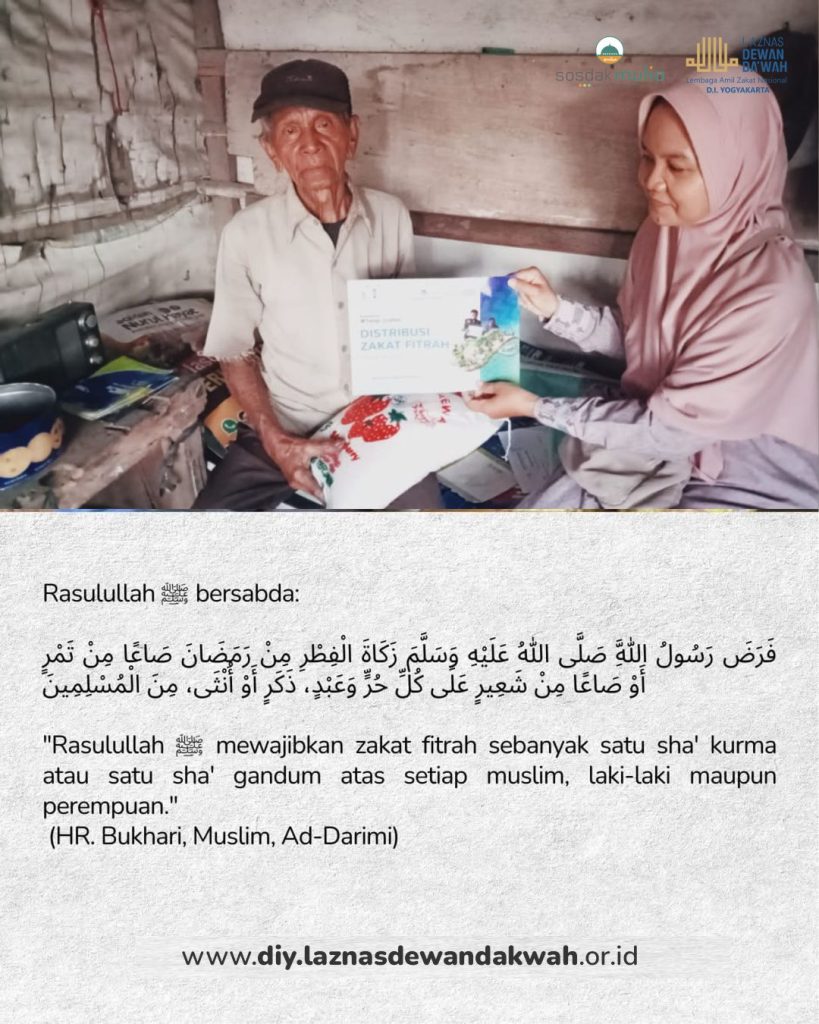 sosdakmulia
LAZNAS
DEWAN
DA'WAH
Lembaga Amil Zakat Nasional
D.I. YOGYAKARTA
DISTRIBUSI
ZAKAT FITRAH
Rasulullah ﷺ bersabda:
فَرَضَ رَسُولُ اللَّهِ صَلَّى اللهُ عَلَيْهِ وَسَلَّمَ زَكَاةَ الْفِطْرِ مِنْ رَمَضَانَ صَاعًا مِنْ تَمْرٍ
أَوْ صَاعًا مِنْ شَعِيرٍ عَلَى كُلِّ حُرٍّ وَعَبْدٍ، ذَكَرٍ أَوْ أُنْثَى، مِنَ الْمُسْلِمِينَ
"Rasulullah ﷺ mewajibkan zakat fitrah sebanyak satu sha' kurma
atau satu sha' gandum atas setiap muslim, laki-laki maupun
perempuan."
(HR. Bukhari, Muslim, Ad-Darimi)
www.diy.laznasdewandakwah.or.id